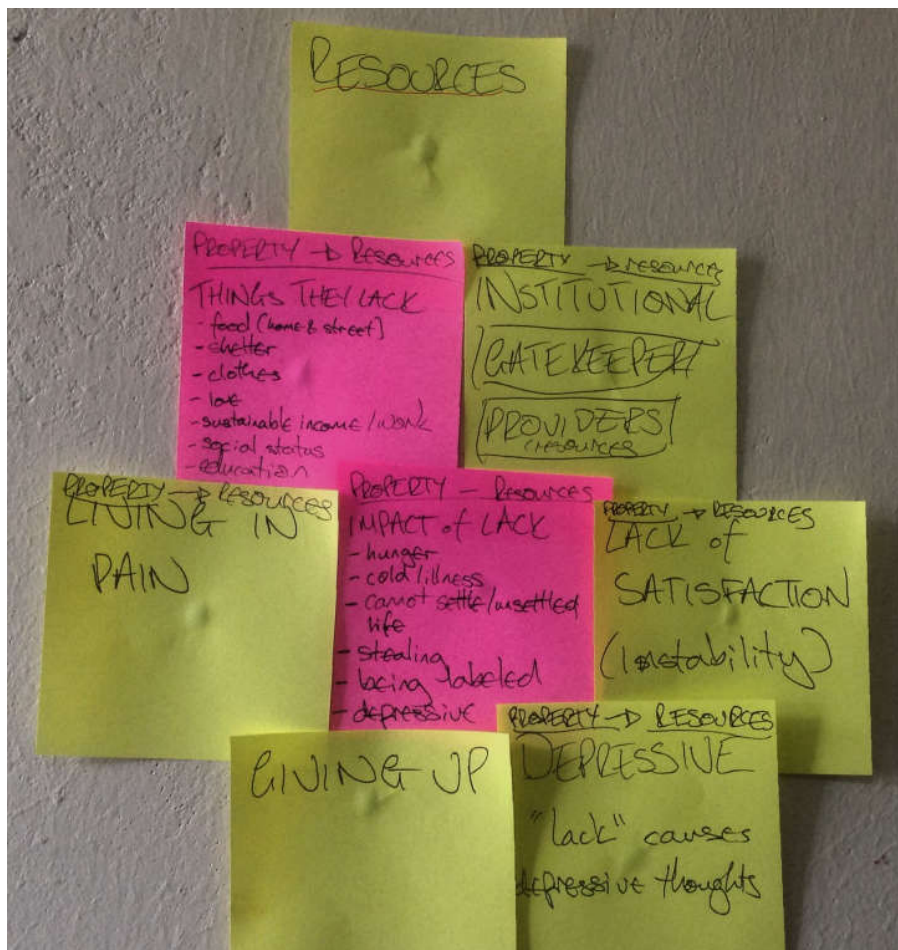 RESOURCES
PROPERTY → RESOURCES
THINGS THEY LACK
- food (home & street)
- shelter
- clothes
- love
- sustainable income/work
- social status
- education
PROPERTY → RESOURCES
INSTITUTIONAL
GATEKEEPERS
PROVIDERS
(resources
PROPERTY → RESOURCES
LIVING IN
PAIN
PROPERTY - RESOURCES
IMPACT of LACK
- hunger
- cold/illness
- cannot settle/unsettled
life
- stealing
- being labeled
- depressive
PROPERTY → RESOURCES
LACK of
SATISFACTION
(Instability)
GIVING UP
PROPERTY → RESOURCES
DEPRESSIVE
"lack" causes
depressive thoughts